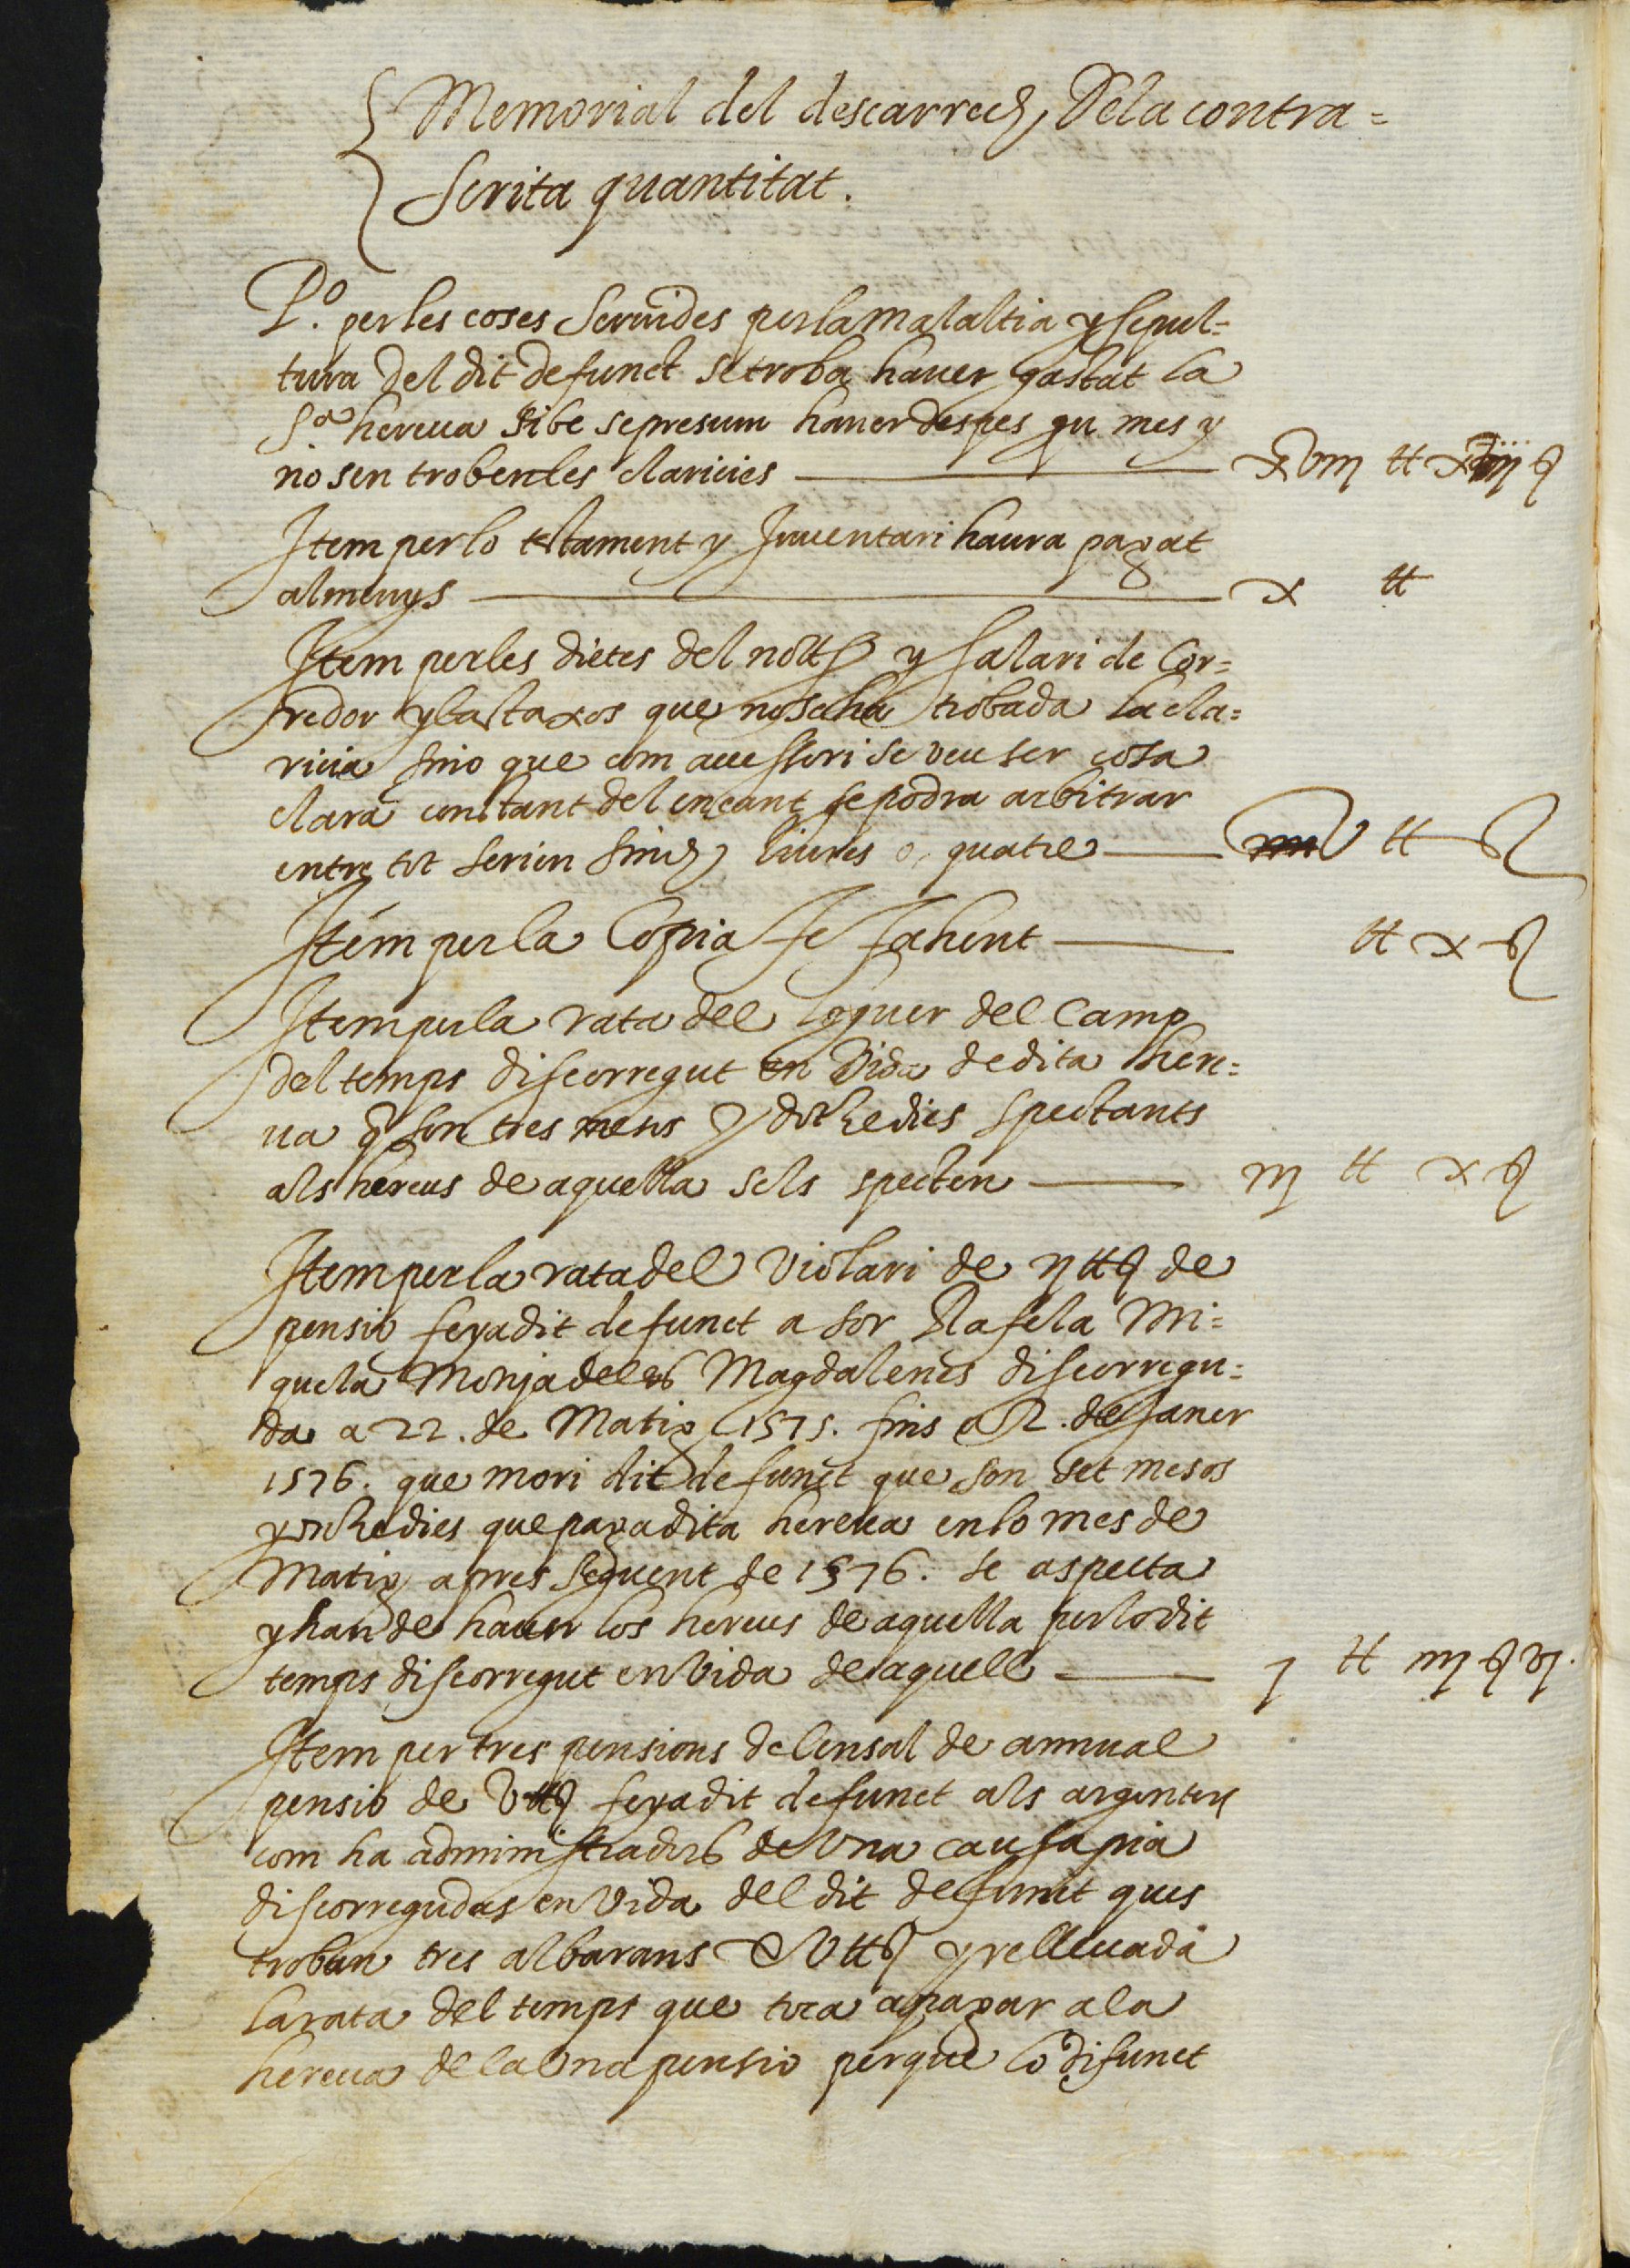 Memorial del descarrech, Dela contra=
scrita quantitat.
Pº. per les coses seruides per la malaltia y sepul=
tura del dit defunct se troba hauer gastat la
Sª. hereua si be se presum hauer despes mes y
no sen troben les claricies xviij ll
Item per lo testament y Inuentari haura pagat
almenys x ll
Item per les dietes del nott y salari de Cor=
redor y bastaxos que no se ha trobada la cla=
ricia sino que com accessori se veu ser cosa
clara constant del encant se podra arbitrar
entre tot serien sinch liures o quatre v ll s
Item per la Copia fe fahent ll x s
Item per la rata del loguer del Camp
del temps discorregut en vida de dita here=
ua q son tres mesos y dotze dies spectants
als hereus de aquella sels specten iij ll x s
Item per la rata del violari de ij ll s de
pensio feya dit defunct a sor Rafela Mi=
quela Monja de les Magdalenes discorregu=
da a 22. de Matix 1575. fins a 2. de Janer
1576. que mori dit defunct que son set mesos
y onze dies que paga dita hereua en lo mes de
Matix apres seguent de 1576. se aspecta
y han de hauer los hereus de aquella per lo dit
temps discorregut en vida de aquell j ll iij s vj.
Item per tres pensions de Censal de annual
pensio de v ll s feya dit defunct als argenters
com ha administradors de vna causa pia
discorregudes en vida del dit defunct ques
troban tres albarans de v ll s y relleuada
la rata del temps que toca a pagar a la
hereua de la vna pensio perque lo difunct